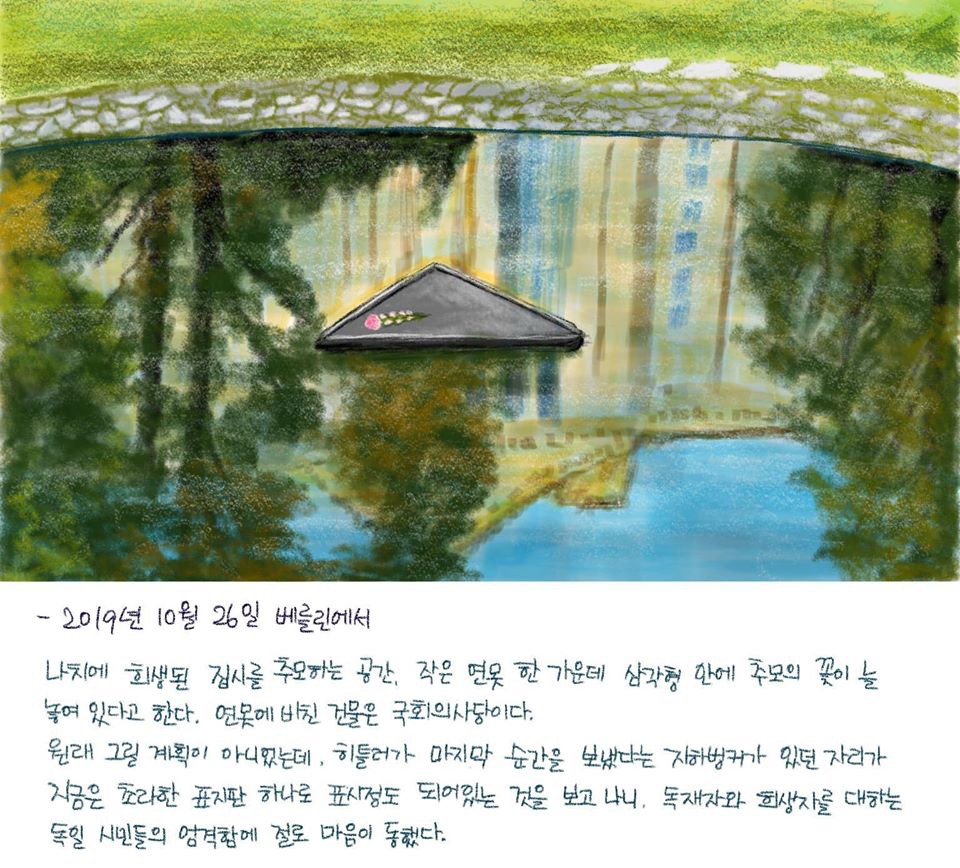 - 2019년 10월 26일 베를린에서
나치에 희생된 집시를 추모하는 공간, 작은 연못 한 가운데 삼각형 안에 추모의 꽃이 늘
놓여 있다고 한다. 연못에 비친 건물은 국회의사당이다.
원래 그릴 계획이 아니었는데, 히틀러가 마지막 순간을 보냈다는 지하벙커가 있던 자리가
지금은 초라한 표지판 하나로 표시정도 되어있는 것을 보고 나니, 독재자와 희생자를 대하는
독일 시민들의 엄격함에 절로 마음이 동했다.